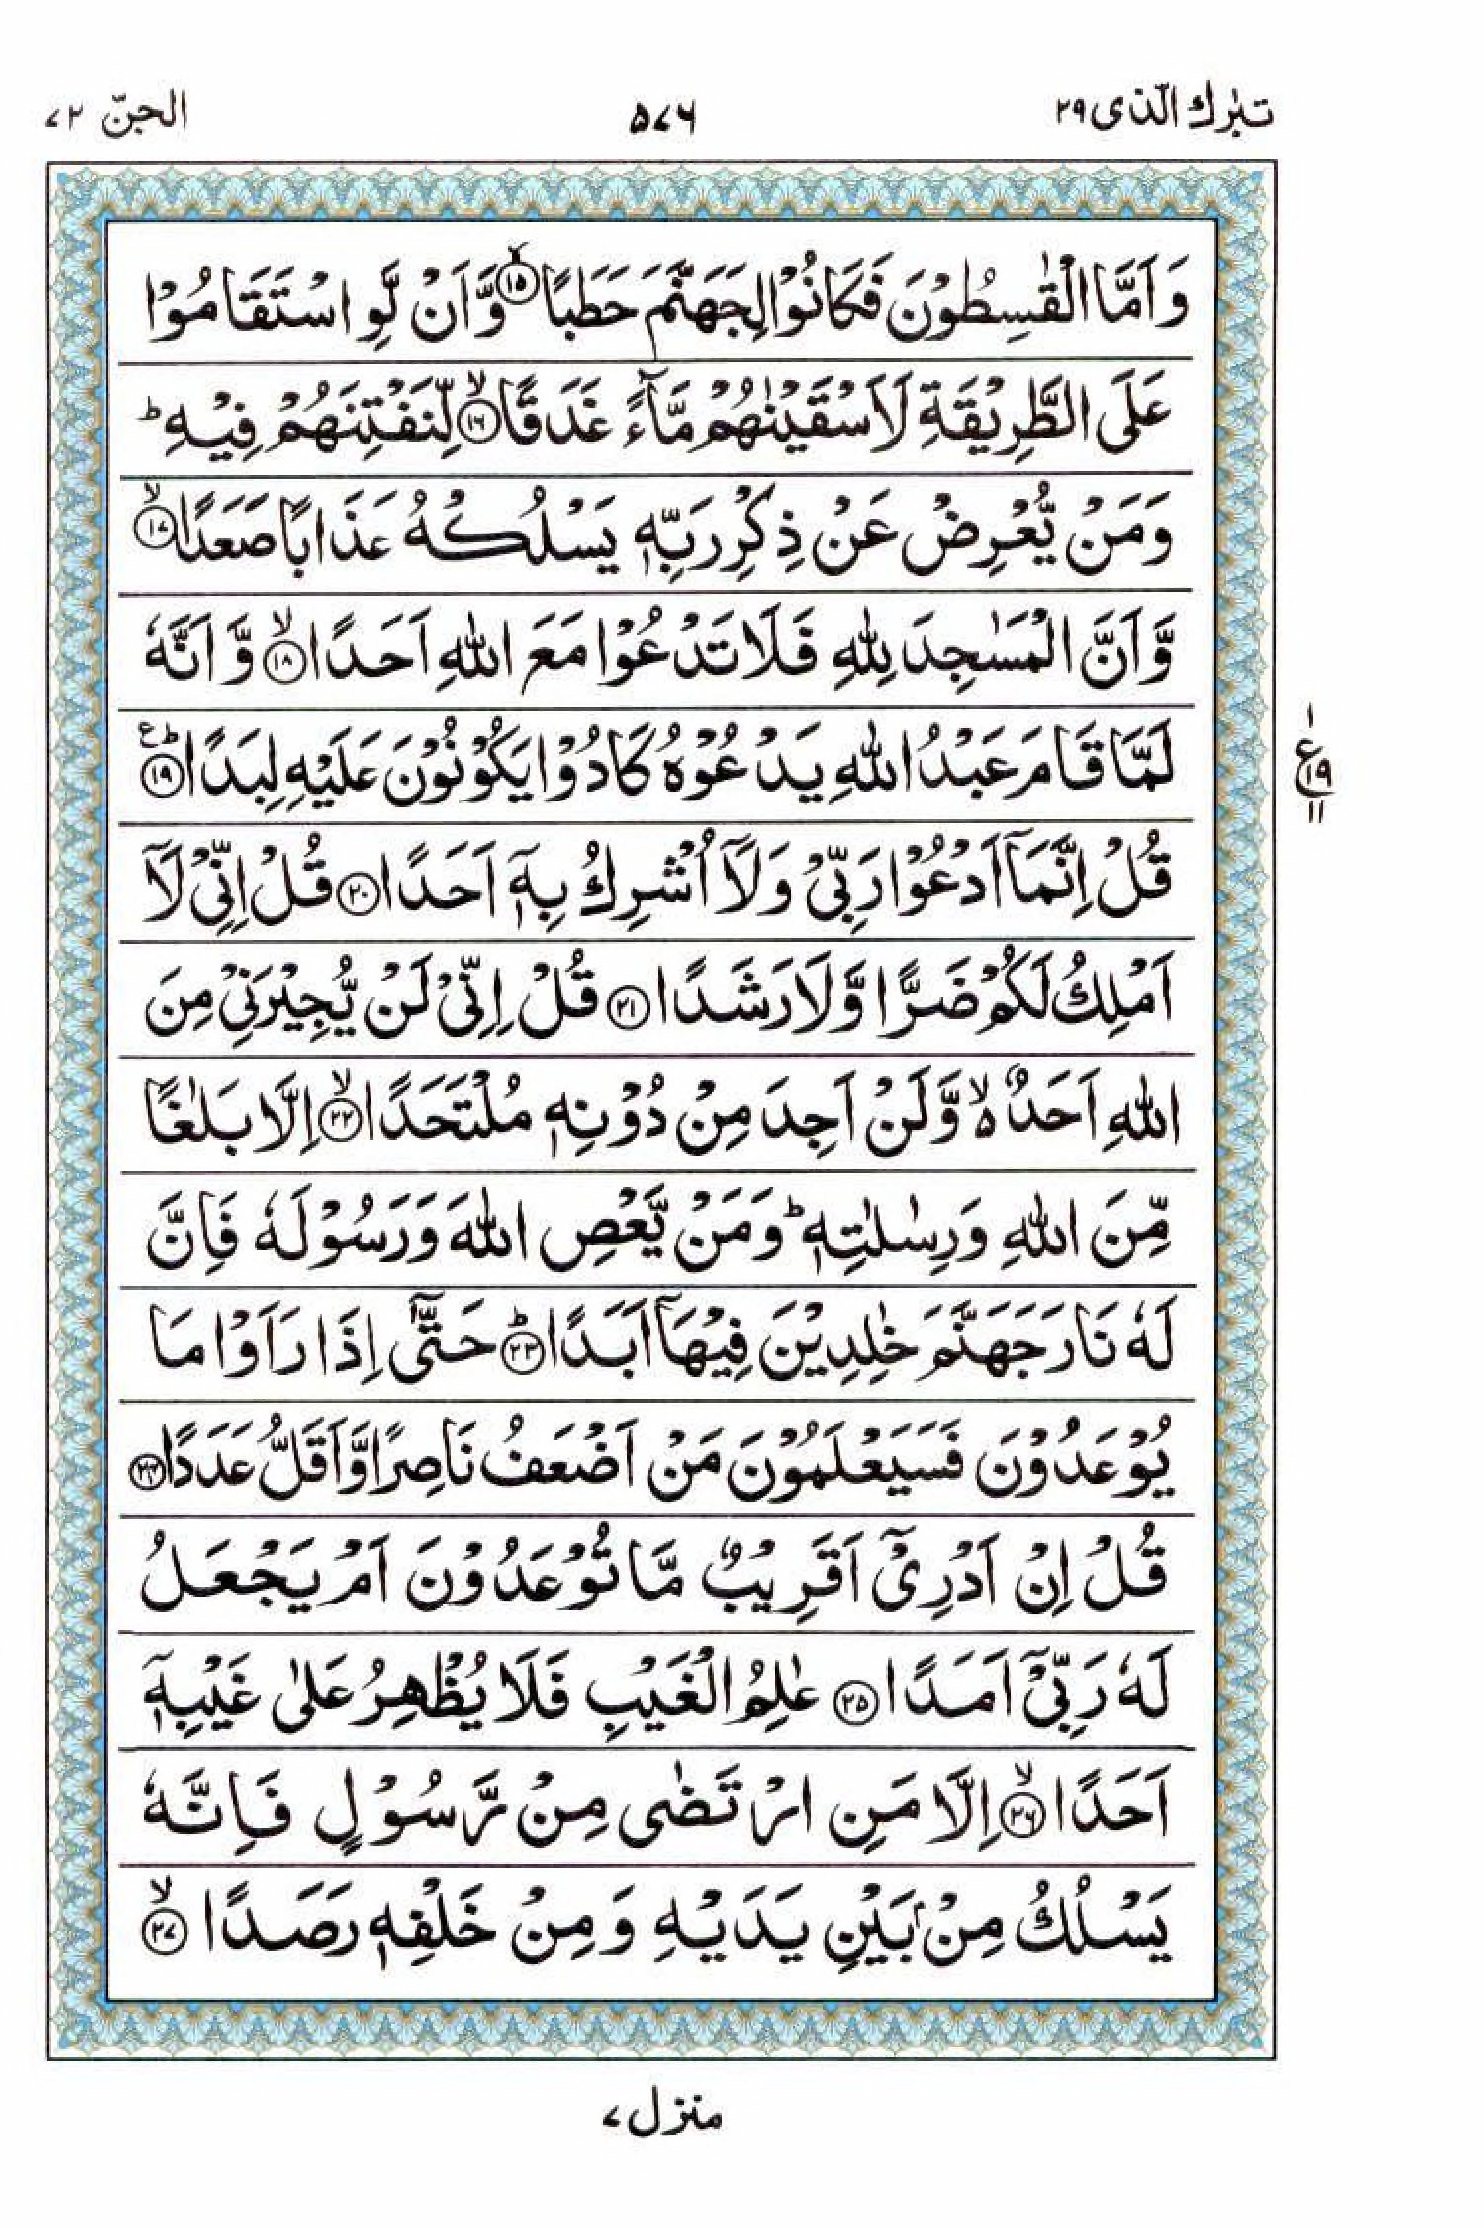 تبٰرك الّذی ۲۹
۵۷۶
الجنّ ۷۲
وَاَمَّا الْقٰسِطُوْنَ فَكَانُوْا لِجَهَنَّمَ حَطَبًا ۙ‏﴿۱۵﴾ وَّاَنْ لَّوِ اسْتَقَامُوْا
عَلَى الطَّرِيْقَةِ لَاَسْقَيْنٰهُمْ مَّآءً غَدَقًا ۙ‏﴿۱۶﴾ لِّنَفْتِنَهُمْ فِيْهِ ؕ
وَمَنْ يُّعْرِضْ عَنْ ذِكْرِ رَبِّهٖ يَسْلُكْهُ عَذَابًا صَعَدًا ۙ‏﴿۱۷﴾
وَّاَنَّ الْمَسٰجِدَ لِلّٰهِ فَلَا تَدْعُوْا مَعَ اللّٰهِ اَحَدًا ۙ‏﴿۱۸﴾ وَّاَنَّهٗ
لَمَّا قَامَ عَبْدُ اللّٰهِ يَدْعُوْهُ كَادُوْا يَكُوْنُوْنَ عَلَيْهِ لِبَدًا ؕ‏﴿۱۹﴾ ع
۱
ع ۱۹
۱۱
قُلْ اِنَّمَاۤ اَدْعُوْا رَبِّىْ وَلَاۤ اُشْرِكُ بِهٖۤ اَحَدًا ‏﴿۲۰﴾ قُلْ اِنِّىْ لَاۤ
اَمْلِكُ لَكُمْ ضَرًّا وَّلَا رَشَدًا ‏﴿۲۱﴾ قُلْ اِنِّىْ لَنْ يُّجِيْرَنِىْ مِنَ
اللّٰهِ اَحَدٌ ۙ۬ وَّلَنْ اَجِدَ مِنْ دُوْنِهٖ مُلْتَحَدًا ۙ‏﴿۲۲﴾ اِلَّا بَلٰغًا
مِّنَ اللّٰهِ وَرِسٰلٰتِهٖ ؕ وَمَنْ يَّعْصِ اللّٰهَ وَرَسُوْلَهٗ فَاِنَّ
لَهٗ نَارَ جَهَنَّمَ خٰلِدِيْنَ فِيْهَاۤ اَبَدًا ؕ‏﴿۲۳﴾ حَتّٰٓى اِذَا رَاَوْا مَا
يُوْعَدُوْنَ فَسَيَعْلَمُوْنَ مَنْ اَضْعَفُ نَاصِرًا وَّاَقَلُّ عَدَدًا ‏﴿۲۴﴾
قُلْ اِنْ اَدْرِىْۤ اَقَرِيْبٌ مَّا تُوْعَدُوْنَ اَمْ يَجْعَلُ
لَهٗ رَبِّىْۤ اَمَدًا ‏﴿۲۵﴾ عٰلِمُ الْغَيْبِ فَلَا يُظْهِرُ عَلٰى غَيْبِهٖۤ
اَحَدًا ۙ‏﴿۲۶﴾ اِلَّا مَنِ ارْتَضٰى مِنْ رَّسُوْلٍ فَاِنَّهٗ
يَسْلُكُ مِنْۢ بَيْنِ يَدَيْهِ وَمِنْ خَلْفِهٖ رَصَدًا ۙ‏﴿۲۷﴾
منزل ۷